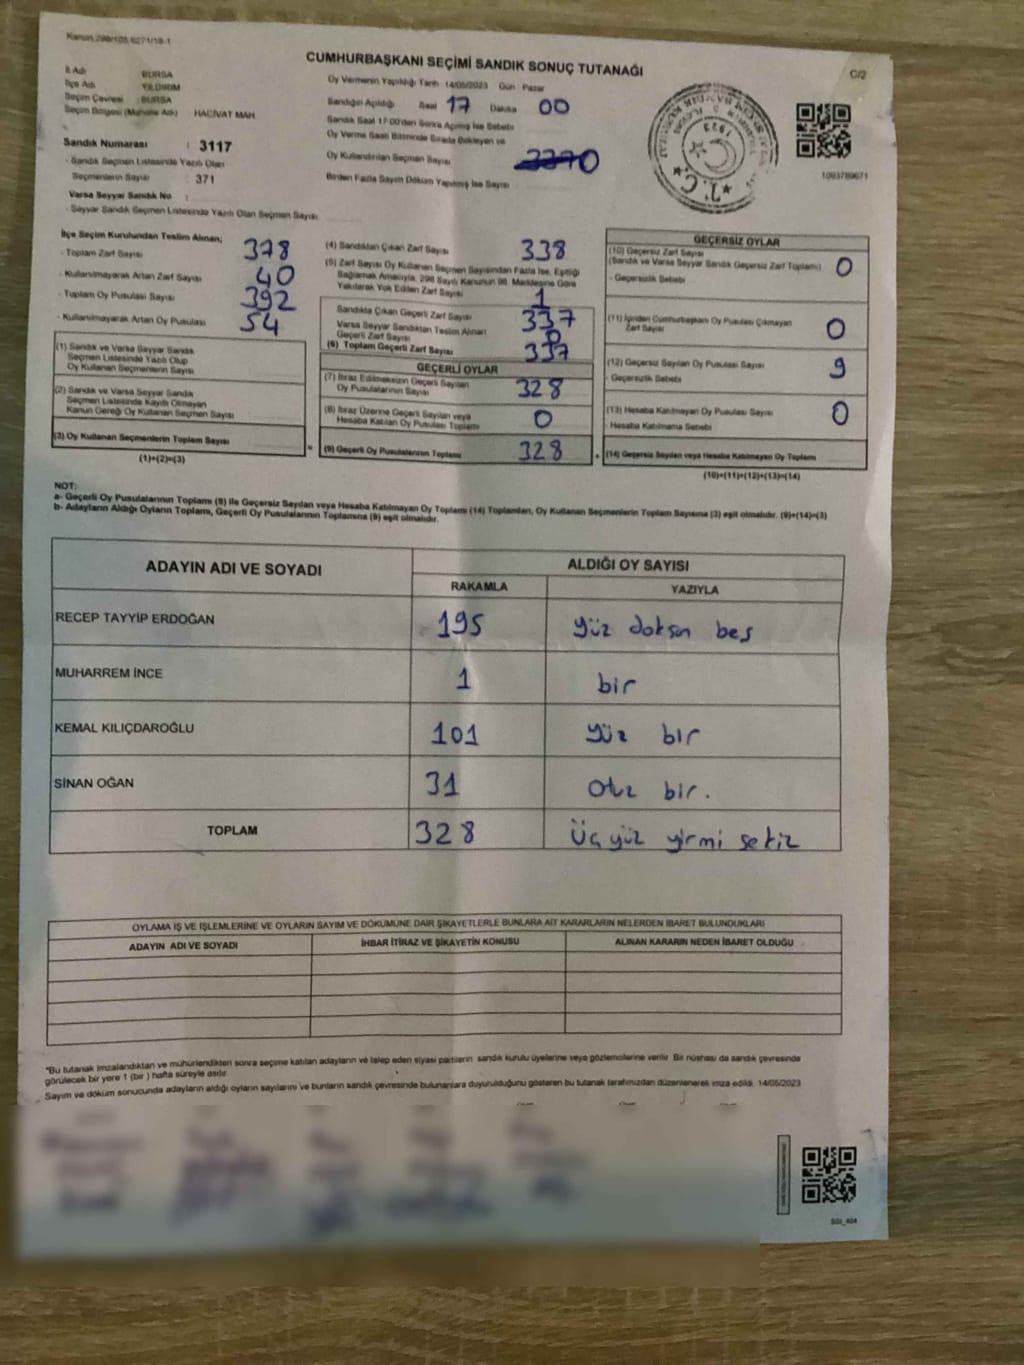 Kanun.298/105,6271/18-1
CUMHURBAŞKANI SEÇİMİ SANDIK SONUÇ TUTANAĞI
C/2
İl Adı : BURSA
İlçe Adı : YILDIRIM
Seçim Çevresi : BURSA
Seçim Bölgesi (Muhtarlık Adı) : HACİVAT MAH.
Sandık Numarası : 3117
- Sandık Seçmen Listesinde Yazılı Olan
Seçmenlerin Sayısı : 371
Varsa Seyyar Sandık No :
- Seyyar Sandık Seçmen Listesinde Yazılı Olan Seçmen Sayısı
Oy Vermenin Yapıldığı Tarih : 14/05/2023 Gün : Pazar
Sandığın Açıldığı Saat 17 Dakika 00
Sandık Saat 17:00'den Sonra Açılmış İse Sebebi
Oy Verme Saati Bitiminde Sırada Bekleyen ve
Oy Kullandırılan Seçmen Sayısı
Birden Fazla Sayım Döküm Yapılmış İse Sayısı
T.C.
1923
1093789671
İlçe Seçim Kurulundan Teslim Alınan;
- Toplam Zarf Sayısı 378
- Kullanılmayarak Artan Zarf Sayısı 40
- Toplam Oy Pusulası Sayısı 392
- Kullanılmayarak Artan Oy Pusulası 54
(1) Sandık ve Varsa Seyyar Sandık
Seçmen Listesinde Yazılı Olup
Oy Kullanan Seçmenlerin Sayısı
(2) Sandık ve Varsa Seyyar Sandık
Seçmen Listesinde Kayıtlı Olmayan
Kanun Gereği Oy Kullanan Seçmen Sayısı
(3) Oy Kullanan Seçmenlerin Toplam Sayısı
(1)+(2)=(3)
=
(4) Sandıktan Çıkan Zarf Sayısı 338
(5) Zarf Sayısı Oy Kullanan Seçmen Sayısından Fazla İse, Eşitliği
Sağlamak Amacıyla, 298 Sayılı Kanunun 98. Maddesine Göre
Yakılarak Yok Edilen Zarf Sayısı 1
Sandıkta Çıkan Geçerli Zarf Sayısı 337
Varsa Seyyar Sandıktan Teslim Alınan
Geçerli Zarf Sayısı 0
(6) Toplam Geçerli Zarf Sayısı 337
GEÇERLİ OYLAR
(7) İtiraz Edilmeksizin Geçerli Sayılan
Oy Pusulalarının Sayısı 328
(8) İtiraz Üzerine Geçerli Sayılan veya
Hesaba Katılan Oy Pusulası Toplamı 0
(9) Geçerli Oy Pusulalarının Toplamı 328
+
GEÇERSİZ OYLAR
(10) Geçersiz Zarf Sayısı
(Sandık ve Varsa Seyyar Sandık Geçersiz Zarf Toplamı) 0
- Geçersizlik Sebebi
(11) İçinden Cumhurbaşkanı Oy Pusulası Çıkmayan
Zarf Sayısı 0
(12) Geçersiz Sayılan Oy Pusulası Sayısı 9
- Geçersizlik Sebebi
(13) Hesaba Katılmayan Oy Pusulası Sayısı 0
- Hesaba Katılmama Sebebi
(14) Geçersiz Sayılan veya Hesaba Katılmayan Oy Toplamı
(10)+(11)+(12)+(13)=(14)
NOT:
a- Geçerli Oy Pusulalarının Toplamı (9) ile Geçersiz Sayılan veya Hesaba Katılmayan Oy Toplamı (14) Toplamları, Oy Kullanan Seçmenlerin Toplam Sayısına (3) eşit olmalıdır. (9)+(14)=(3)
b- Adayların Aldığı Oyların Toplamı, Geçerli Oy Pusulalarının Toplamına (9) eşit olmalıdır.
ADAYIN ADI VE SOYADI
ALDIĞI OY SAYISI
RAKAMLA YAZIYLA
RECEP TAYYİP ERDOĞAN 195 yüz doksan beş
MUHARREM İNCE 1 bir
KEMAL KILIÇDAROĞLU 101 yüz bir
SİNAN OĞAN 31 otuz bir.
TOPLAM 328 Üç yüz yirmi sekiz
OYLAMA İŞ VE İŞLEMLERİNE VE OYLARIN SAYIM VE DÖKÜMÜNE DAİR ŞİKAYETLERLE BUNLARA AİT KARARLARIN NELERDEN İBARET BULUNDUKLARI
ADAYIN ADI VE SOYADI İHBAR İTİRAZ VE ŞİKAYETİN KONUSU ALINAN KARARIN NEDEN İBARET OLDUĞU
*Bu tutanak imzalandıktan ve mühürlendikten sonra seçime katılan adayların ve talep eden siyasi partilerin sandık kurulu üyelerine veya gözlemcilerine verilir. Bir nüshası da sandık çevresinde
görülecek bir yere 1 (bir) hafta süreyle asılır.
Sayım ve döküm sonucunda adayların aldığı oyların sayılarını ve bunların sandık çevresinde bulunanlara duyurulduğunu gösteren bu tutanak tarafımızdan düzenlenerek imza edildi. 14/05/2023